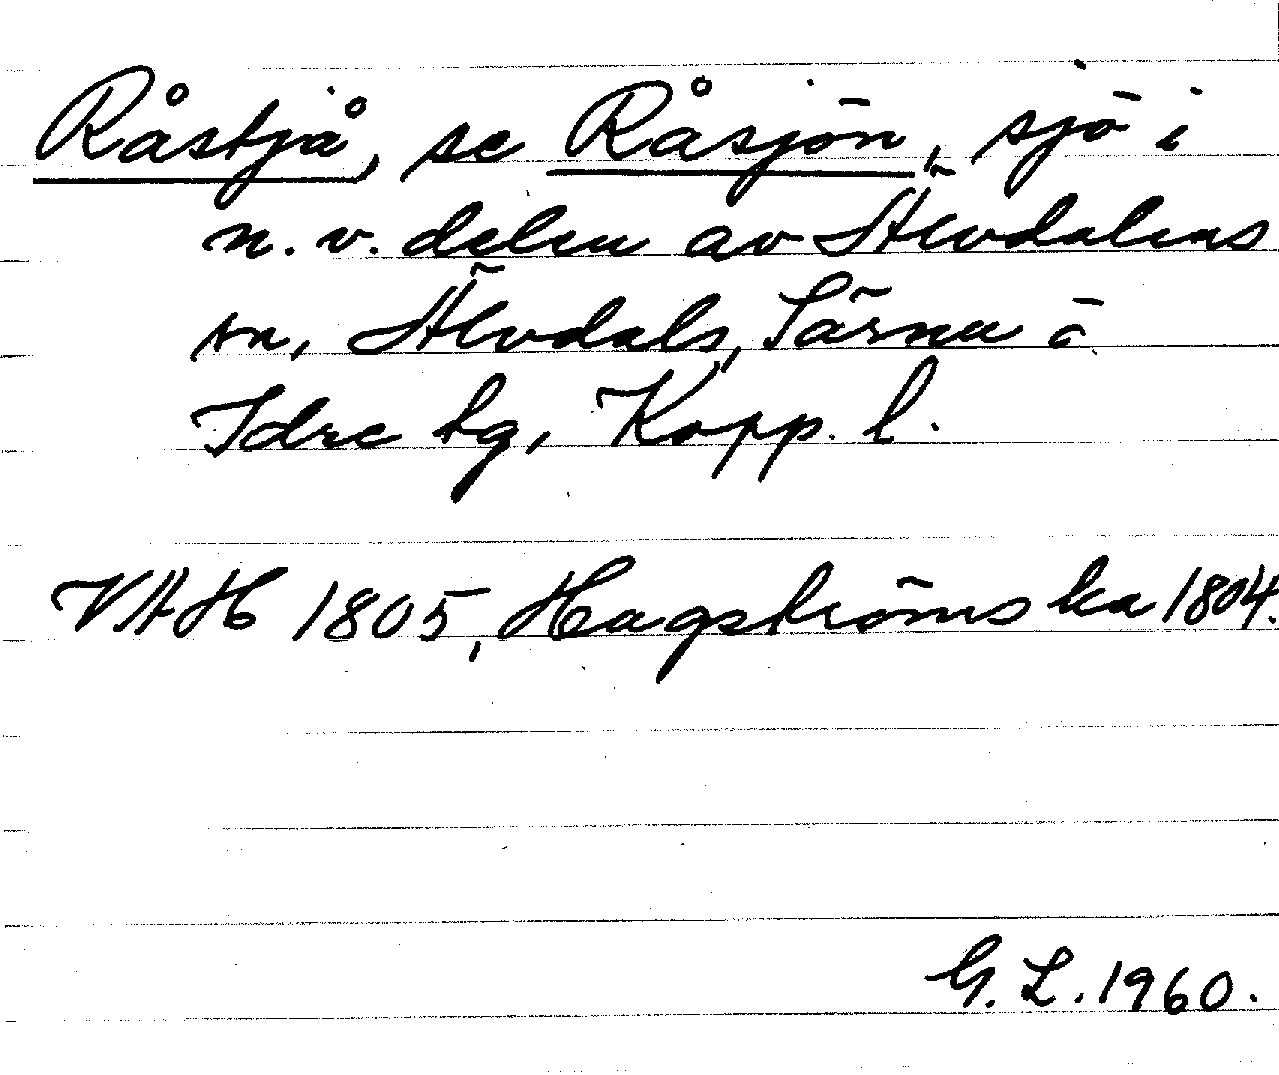 Råstjå, se Råsjön, sjö i
n.v. delen av Älvdalens
sn, Älvdals, Särna o
Idre tg, Kopp. l.
VAH 1805, Hagströms ka 1804.
G. L. 1960.